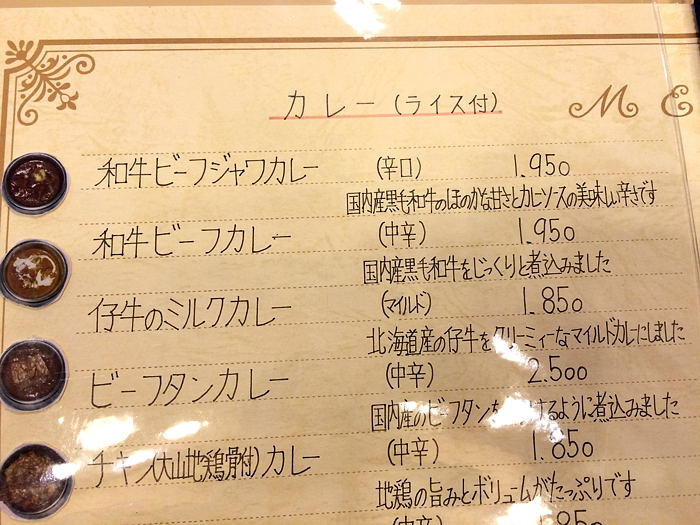 カレー（ライス付）
M E
和牛ビーフジャワカレー （辛口） 1.950
国内産黒毛和牛のほのかな甘さとカレーソースの美味しい辛さです
和牛ビーフカレー （中辛） 1.950
国内産黒毛和牛をじっくりと煮込みました
仔牛のミルクカレー （マイルド） 1.850
北海道産の仔牛をクリーミィーなマイルドカレーにしました
ビーフタンカレー （中辛） 2.500
国内産のビーフタンを けるように煮込みました
チキン（大山地鶏骨付）カレー （中辛） 1.850
地鶏の旨みとボリュームがたっぷりです
（中辛）